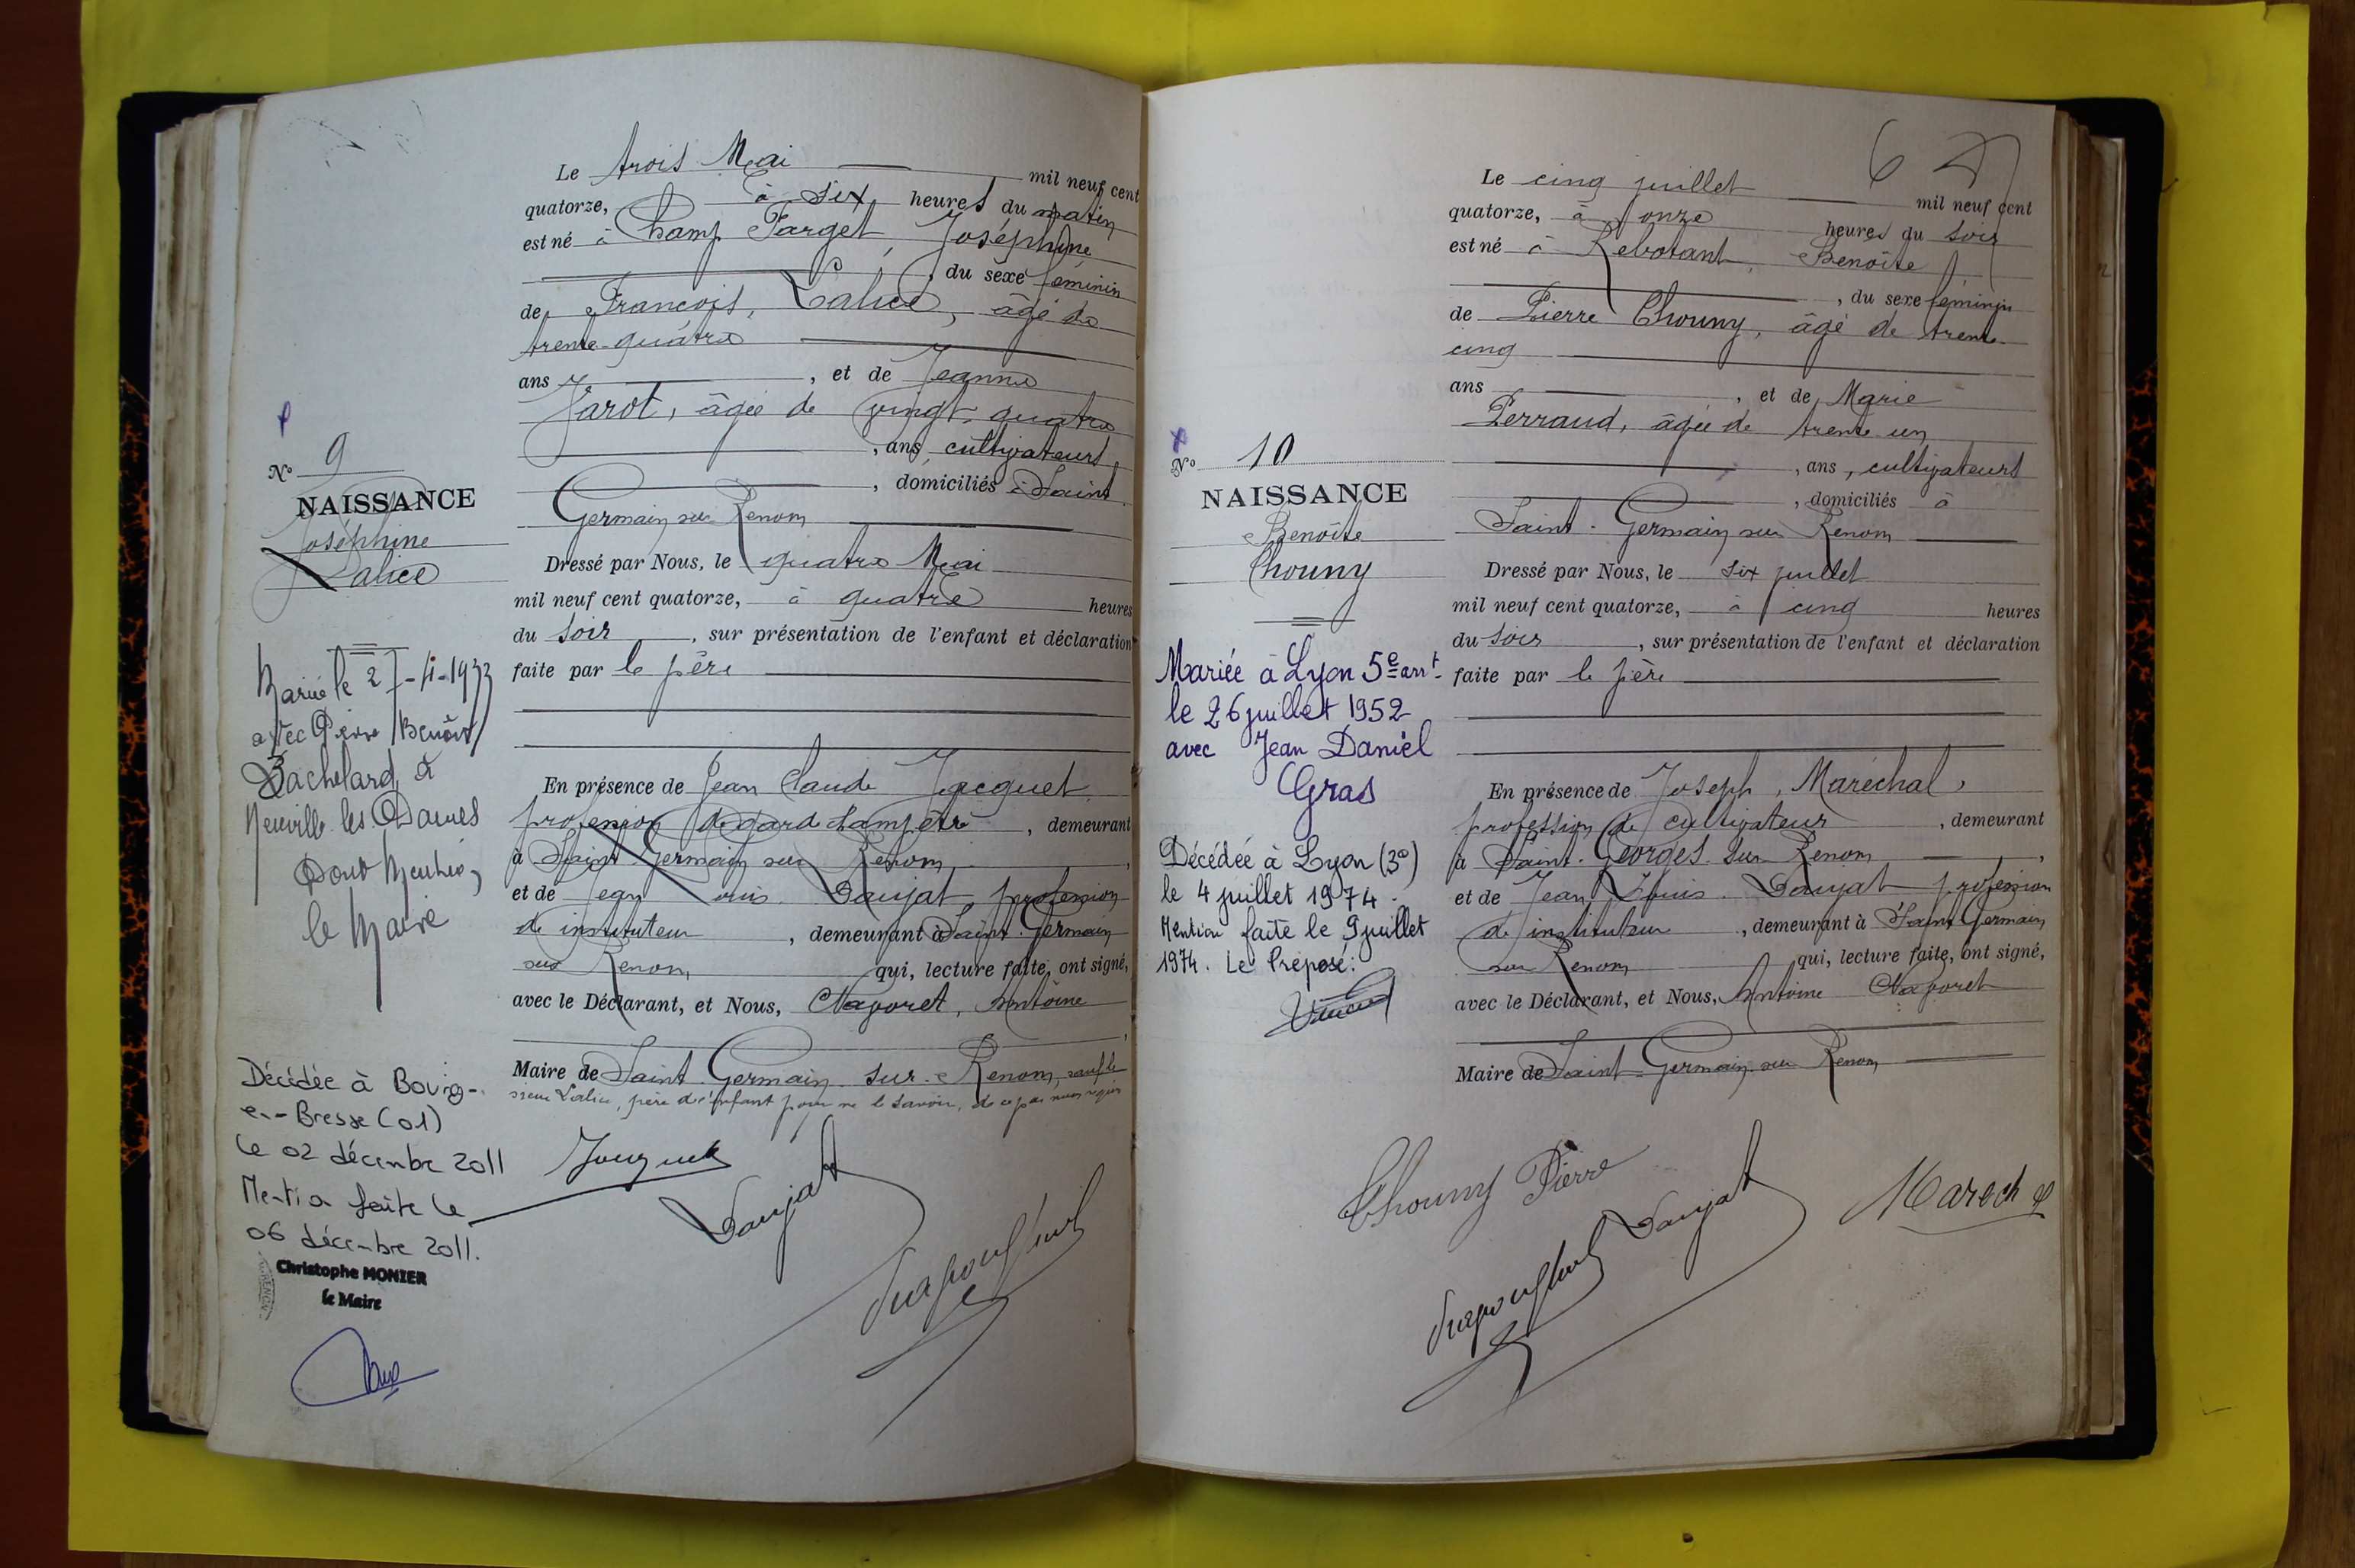 Le trois Mai mil neuf cent
quatorze, à six heures du matin
est né à Champ Farget, Joséphine
, du sexe féminin
de François, Lalice, âgé de
trente-quatre
ans , et de Jeanne
Jarot, âgée de vingt-quatre
, ans cultivateurs
, domiciliés à Saint
Germain sur Renom
Dressé par Nous, le quatre Mai
mil neuf cent quatorze, à quatre heures
du soir , sur présentation de l'enfant et déclaration
faite par le père
En présence de Jean Claude Jacquet
profession de garde champêtre , demeurant
à Saint Germain sur Renom ,
et de Jean Louis Daujat, profession
de instituteur , demeurant à Saint Germain
sur Renom qui, lecture faite, ont signé,
avec le Déclarant, et Nous, Antoine
Maire de Saint Germain sur Renom, sauf le
sieur Lalice, père de l'enfant pour ne le savoir, de ce par nous requis
Daujat
No 9
NAISSANCE
Joséphine
Lalice
Mariée le 27-4-1933
avec Pierre Benoît
Bachelard à
Neuville les Dames
Dont Mention,
le Maire
Décédée à Bourg-
en-Bresse (01)
le 02 décembre 2011
Mention faite le
06 décembre 2011.
Christophe MONIER
le Maire
67
Le cinq juillet mil neuf cent
quatorze, à onze heures du soir
est né à Rebotant, Benoîte
, du sexe féminin
de Pierre Chouny, âgé de trente
cinq
ans , et de Marie
Perraud, âgée de trente un
, ans, cultivateurs
, domiciliés à
Saint-Germain sur Renom
Dressé par Nous, le six juillet
mil neuf cent quatorze, à cinq heures
du soir , sur présentation de l'enfant et déclaration
faite par le père
En présence de Joseph, Maréchal,
profession de cultivateur , demeurant
à Saint-Georges sur Renom ,
et de Jean Louis Daujat profession
de instituteur , demeurant à Saint Germain
sur Renom qui, lecture faite, ont signé,
avec le Déclarant, et Nous, Antoine
Maire de Saint-Germain sur Renom
Chouny Pierre
Daujat
Marechal
No 10
NAISSANCE
Benoîte
Chouny
Mariée à Lyon 5e arrt
le 26 juillet 1952
avec Jean Daniel
Gras
Décédée à Lyon (3e)
le 4 juillet 1974.
Mention faite le 9 juillet
1974. Le Préposé: